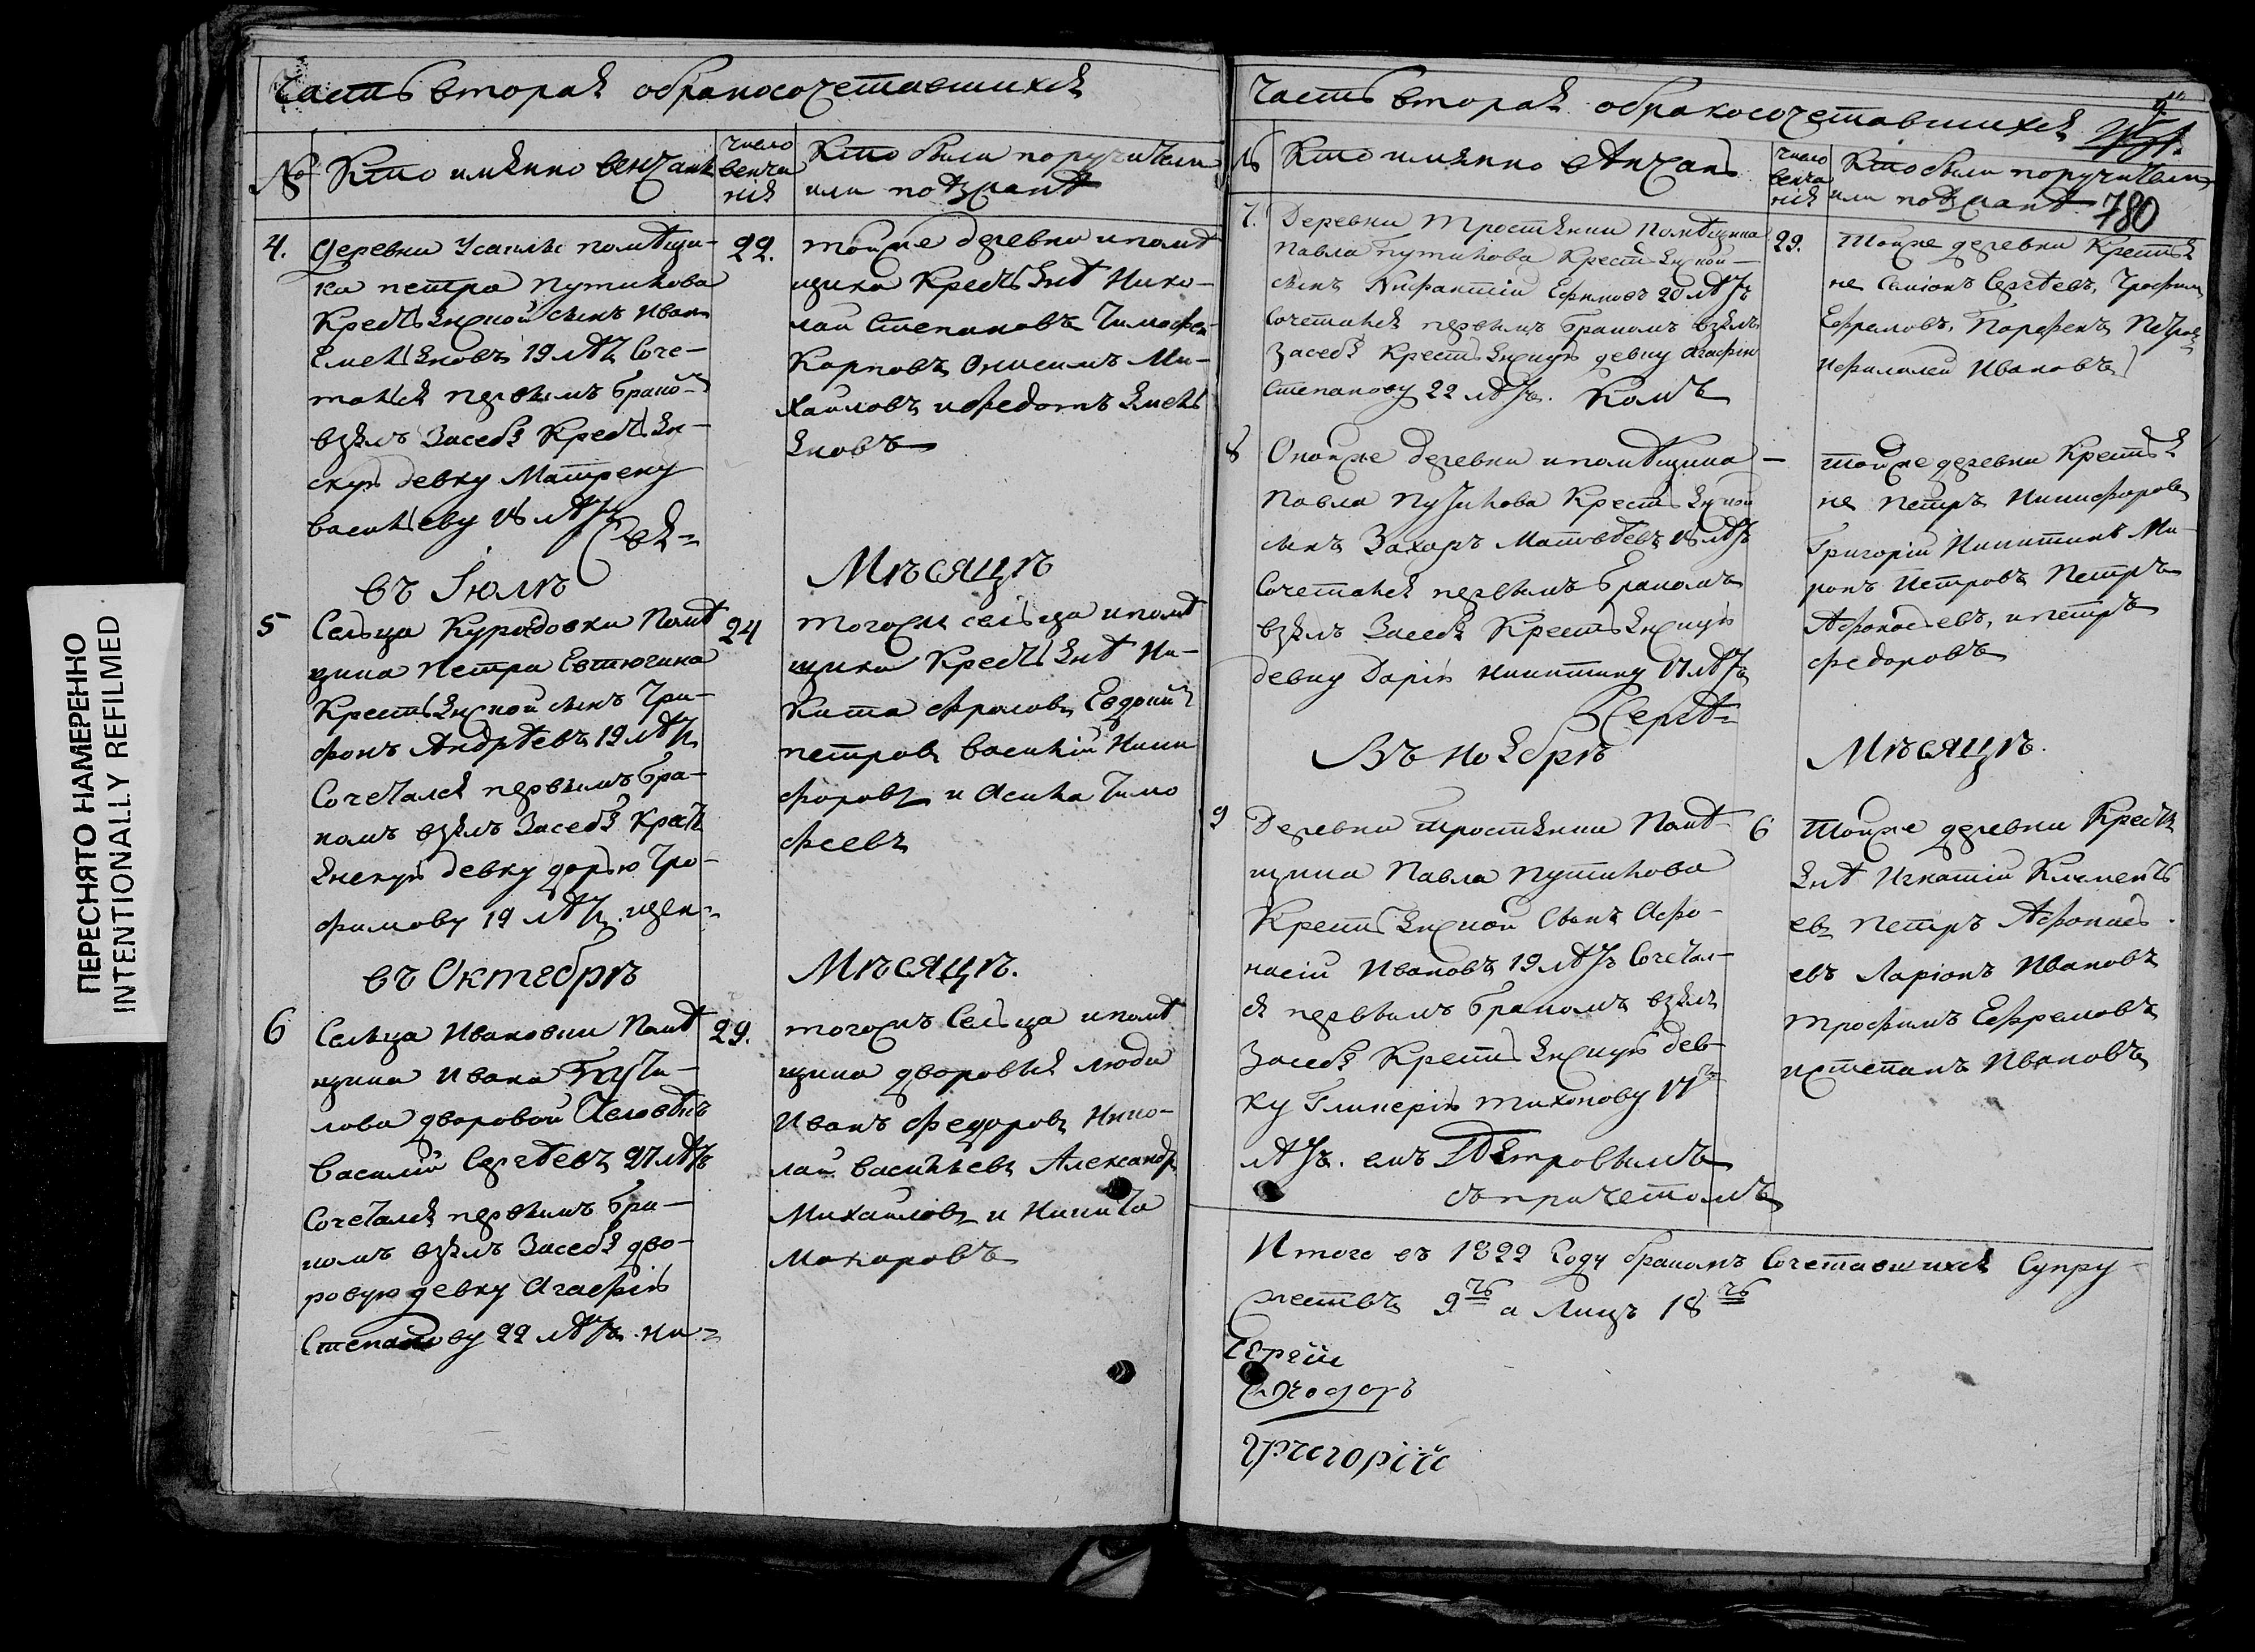 ПЕРЕСНЯТО НАМЕРЕННО
INTENTIONALLY REFILMED
Часть вторая обракосочетавшихся
№ Кто имянно венчанъ
число
венча
нія
Кто были поручители
или поѣзжанѣ
4. Деревни помѣщи-
ка петра Путилова
Крестьянской сынъ Иванъ
Емельяновъ 19 лѣтъ Соче-
тался первымъ брако-
взялъ засебя Крестьян-
скую девку Матрену
васильеву 18 лѣтъ
22.
тойже деревни ипомѣ
щика Крестьянѣ Нико-
лай Степановъ Тимофей
Карповъ Онисимъ Ми-
хаиловъ ифедотъ Емель
яновъ
въ Іюлѣ
Мѣсяцѣ
5 Сельца Куроѣдовки Помѣ
щика Петра Евтюгина
Крестьянской сынъ Три-
фонъ Андрѣевъ 19 лѣтъ
Сочетался первымъ бра-
комъ взялъ Засебя Крест
янскую девку дарью Тро-
фимову 19 лѣтъ. щен-
24
тогожъ сельца ипомѣ
щика Крестьянѣ Ни-
кита Фроловъ Евдокимъ
петровъ василій Ники
форовъ и Тимо
феевъ
въ Октебрѣ
Мѣсяцѣ.
6 Сельца Ивановки Помѣ
щика Ивана
лова дворовой Человѣкъ
Василій Сергѣевъ 27 лѣтъ
Сочетался первымъ бра-
комъ взялъ Засебя дво-
ровую девку Агафію
Степанову 22 лѣтъ. ни-
29.
тогожъ Сельца ипомѣ
щика дворовыя люди
Иванъ Федоровъ Нико-
лай васильевъ Александръ
Михаиловъ и Никита
Макаровъ
Часть вторая обракосочетавшихся
№ Кто имянно вѣнчанъ
число
венча
нія
Кто были поручители
или поѣзжанѣ.
780
7. Деревни Тростянки Помѣщика
Павла Путилова Крестьянской
сынъ Ефимовъ 20 лѣтъ
Сочетался первымъ бракомъ взялъ
засебя Крестьянскую девку Агафію
Степанову 22 лѣтъ. комъ
29.
Тойже деревни Крестья
не Симіонъ Сергѣевъ, Трофимъ
Ефремовъ, Парфенъ Петровъ
Ивановъ
8 Онойже деревни ипомѣщика
Павла Путилова Крестьянской
сынъ Захаръ Матвѣевъ 18 лѣтъ
Сочетался первымъ бракомъ
взялъ Засебя Крестьянскую
девку Дарію никитину 17 лѣтъ
Сергѣ-
—
тойже деревни Крестья
не Петръ Никифоровъ
Григорій Никитинъ Ми-
ронъ Петровъ Петръ
Афонасьевъ, ипетръ
федоровъ
Въ ноябрѣ
Мѣсяцѣ.
9 Деревни тростянки Помѣ-
щика Павла Путилова
Крестьянской Сынъ Афо-
насій Ивановъ 19 лѣтъ Сочетал-
ся первымъ бракомъ взялъ
Засебя Крестьянскую дев-
ку Гликерію тихонову 17
лѣтъ. емъ Пѣтровымъ
съ причетомъ
6
Тойже деревни Кресть
янѣ Игнатій Клементь
евъ Петръ Афонась
евъ Ларіонъ Ивановъ
трофимъ Ефремовъ
истепанъ Ивановъ
Итого въ 1822 Году бракомъ Сочетавшихся Супру-
жествъ 9ть а Лицъ 18ть
Сергій
Григорій